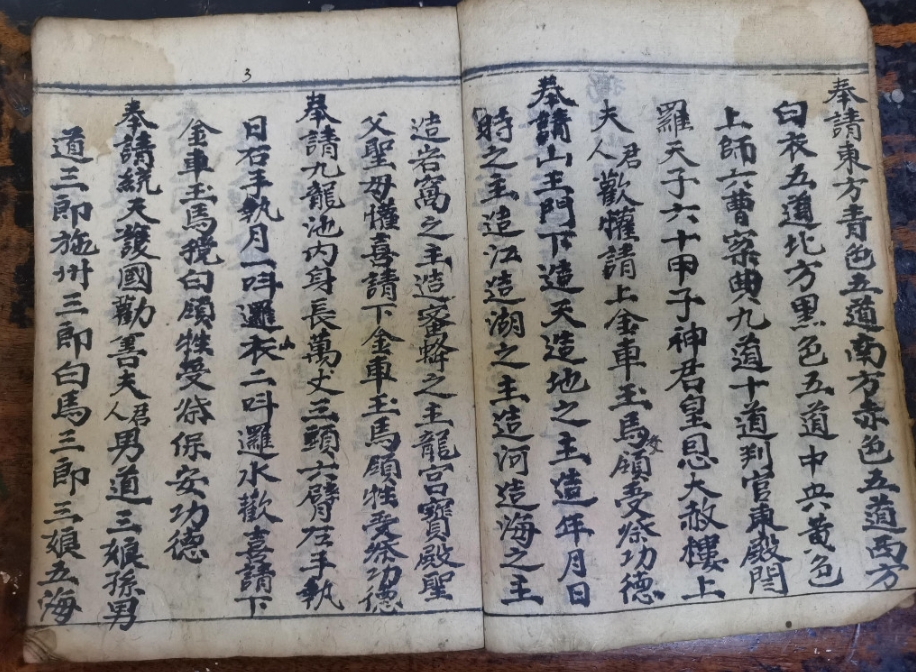 奉請東方青色五道南方赤色五道西方
白衣五道北方黑色五道中央黃色
上師六曹案典九道十道判官東殿門
羅天子六十甲子神君皇恩大赦樓上
夫君人歡懽請上金車玉馬領受祭功德
奉請山王門下造天造地之主造年月日
時之主造江造湖之主造河造海之主
造岩窩之主造蜜蜂之王龍宮寶殿聖
父聖母懽喜請下金車玉馬領牲受祭功德
奉請九龍池內身長萬丈三頭六臂左手執
日右手執月一呌邏衣二呌邏水歡喜請下
金車玉馬稅白領牲受祭保安功德
奉請統天護國勸善夫君人男道三娘孫男
道三郎施州三郎白馬三郎三娘五海
3